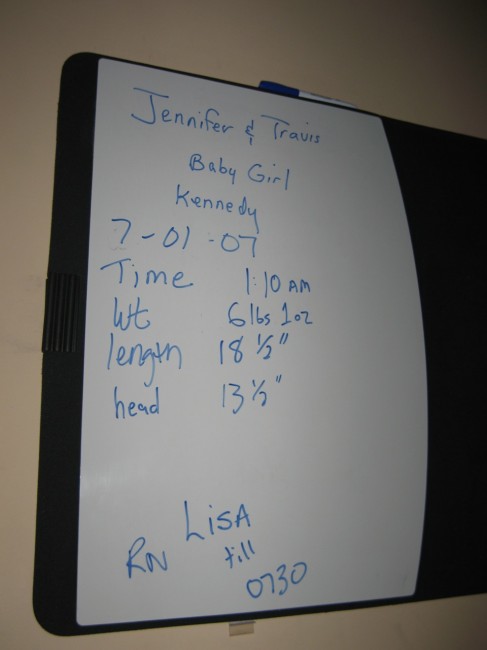 Jennifer & Travis
Baby Girl
Kennedy
7-01-07
Time 1:10 AM
Wt 6 lbs 1 oz
length 18 ½"
head 13 ½"
LiSA
RN till
0730